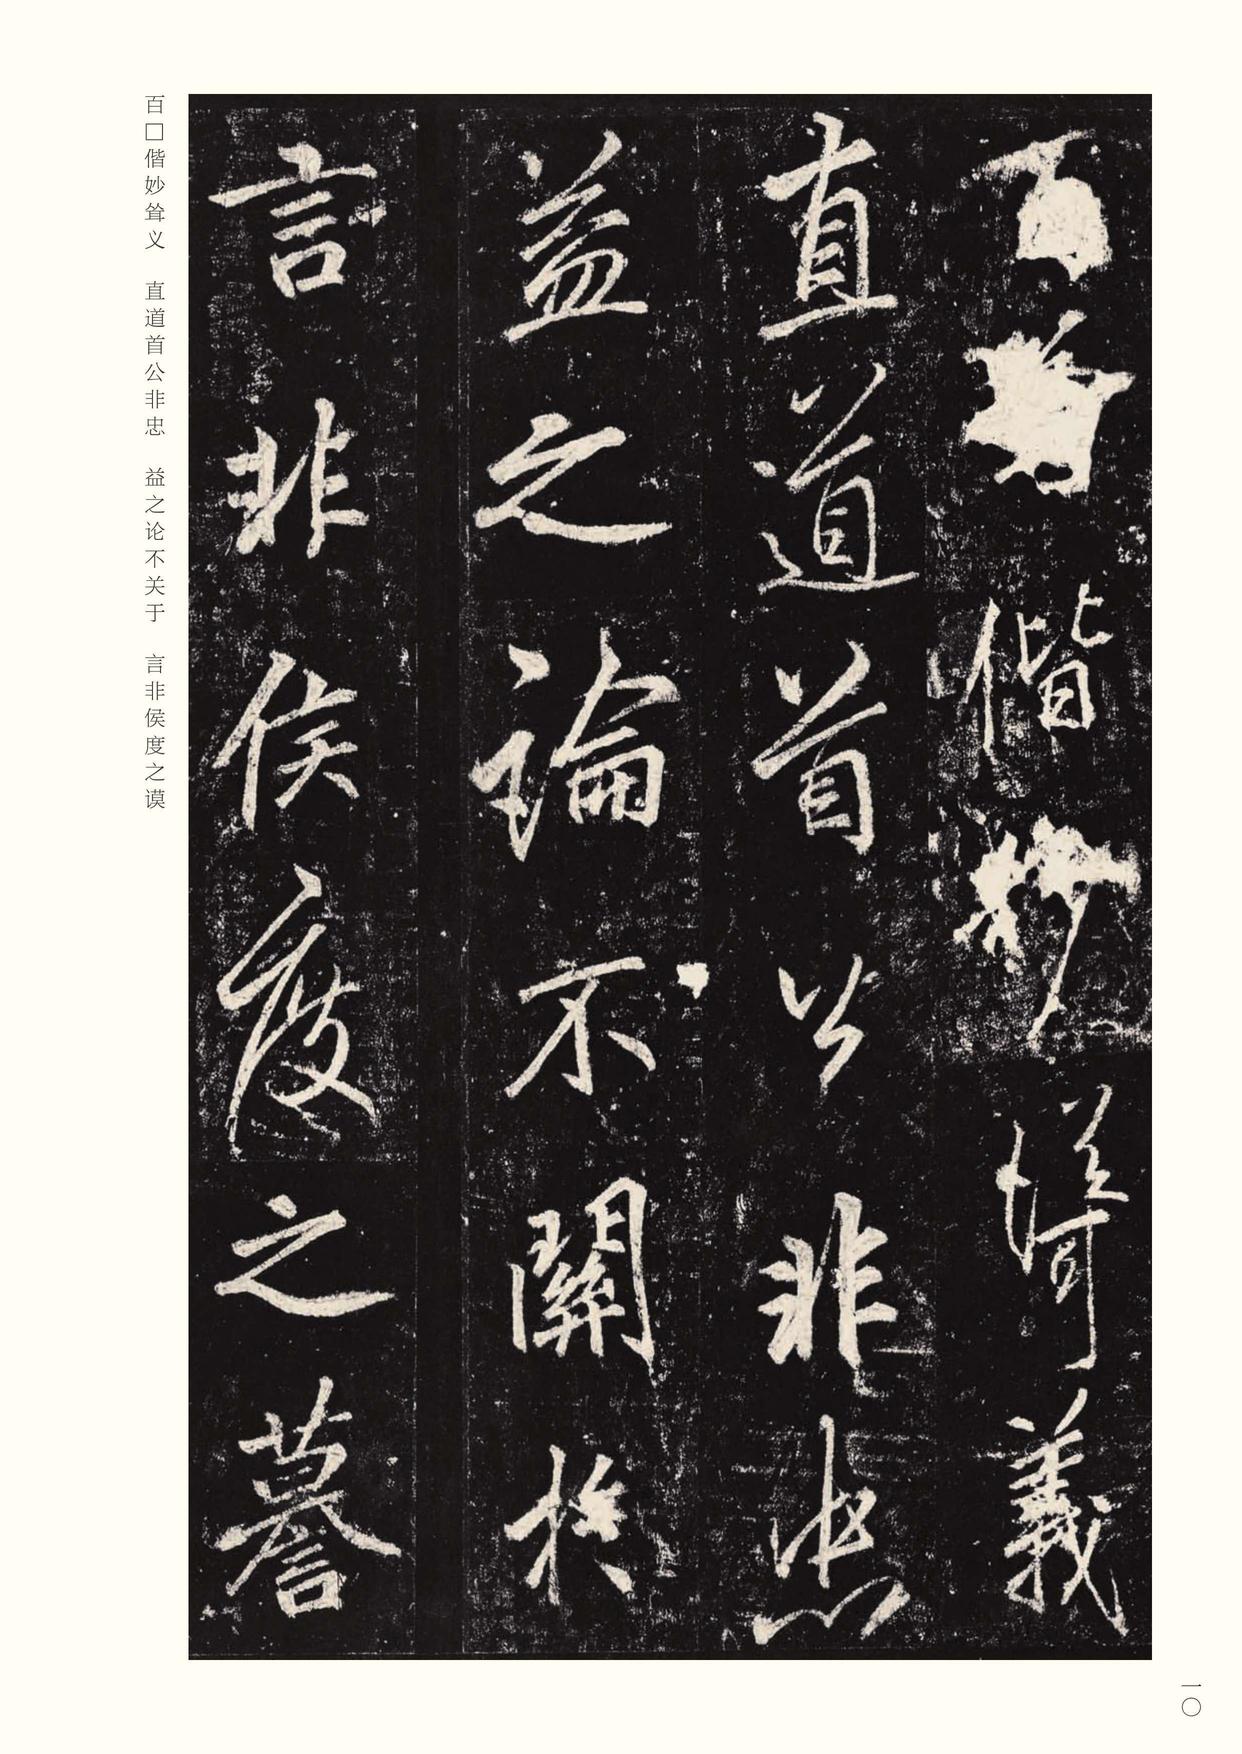 百偕妙義
直道首公非忠
益之論不關於
言非侯度之謩
百□偕妙耸义　直道首公非忠　益之论不关于　言非侯度之谟
一〇